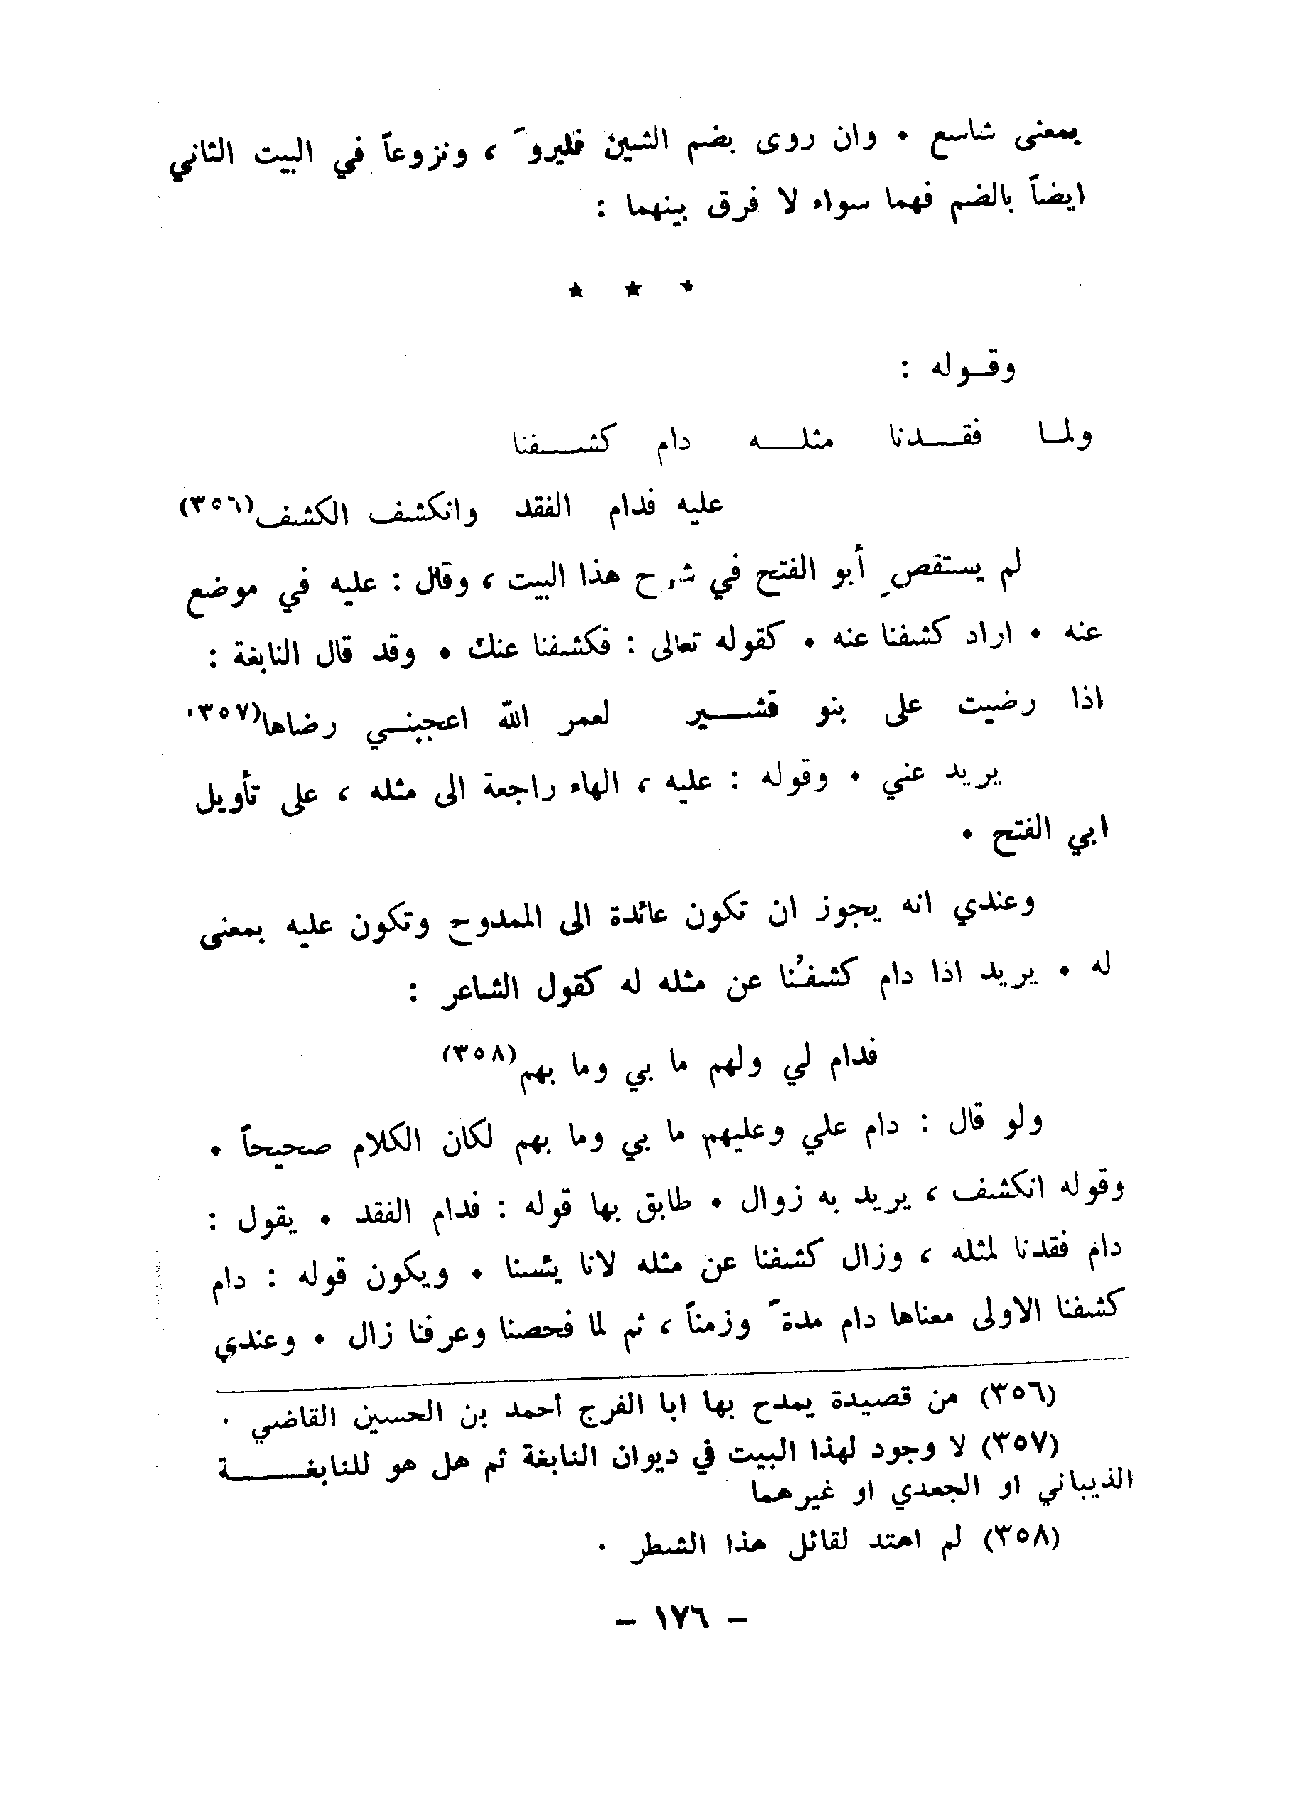 بمعنى شاسع ٠ وان روى بضم الشين فليروَ ، ونزوعاً في البيت الثاني
ايضاً بالضم فهما سواء لا فرق بينهما :
* * *
وقـوله :
ولمـا فقـــدنا مثلـــه دام كشـــفنا
عليه فدام الفقد وانكشف الكشف(٣٥٦)
لم يستقصِ أبو الفتح في شرح هذا البيت ، وقال : عليه في موضع
عنه ٠ اراد كشفنا عنه ٠ كقوله تعالى : فكشفنا عنك ٠ وقد قال النابغة :
اذا رضيت على بنو قشــير لعمر الله اعجبنـي رضاها(٣٥٧)
يريد عني ٠ وقوله : عليه ، الهاء راجعة الى مثله ، على تأويل
ابي الفتح ٠
وعندي انه يجوز ان تكون عائدة الى الممدوح وتكون عليه بمعنى
له ٠ يريد اذا دام كشفُنا عن مثله له كقول الشاعر :
فدام لي ولهم ما بي وما بهم(٣٥٨)
ولو قال : دام علي وعليهم ما بي وما بهم لكان الكلام صحيحاً ٠
وقوله انكشف ، يريد به زوال ٠ طابق بها قوله : فدام الفقد ٠ يقول :
دام فقدنا لمثله ، وزال كشفنا عن مثله لانا يئسنا ٠ ويكون قوله : دام
كشفنا الاولى معناها دام مدةً وزمناً ، ثم لما فحصنا وعرفنا زال ٠ وعندي
(٣٥٦) من قصيدة يمدح بها ابا الفرج أحمد بن الحسين القاضي ٠
(٣٥٧) لا وجود لهذا البيت في ديوان النابغة ثم هل هو للنابغــــة
الذيباني او الجعدي او غيرهما
(٣٥٨) لم اهتد لقائل هذا الشطر ٠
– ١٧٦ –